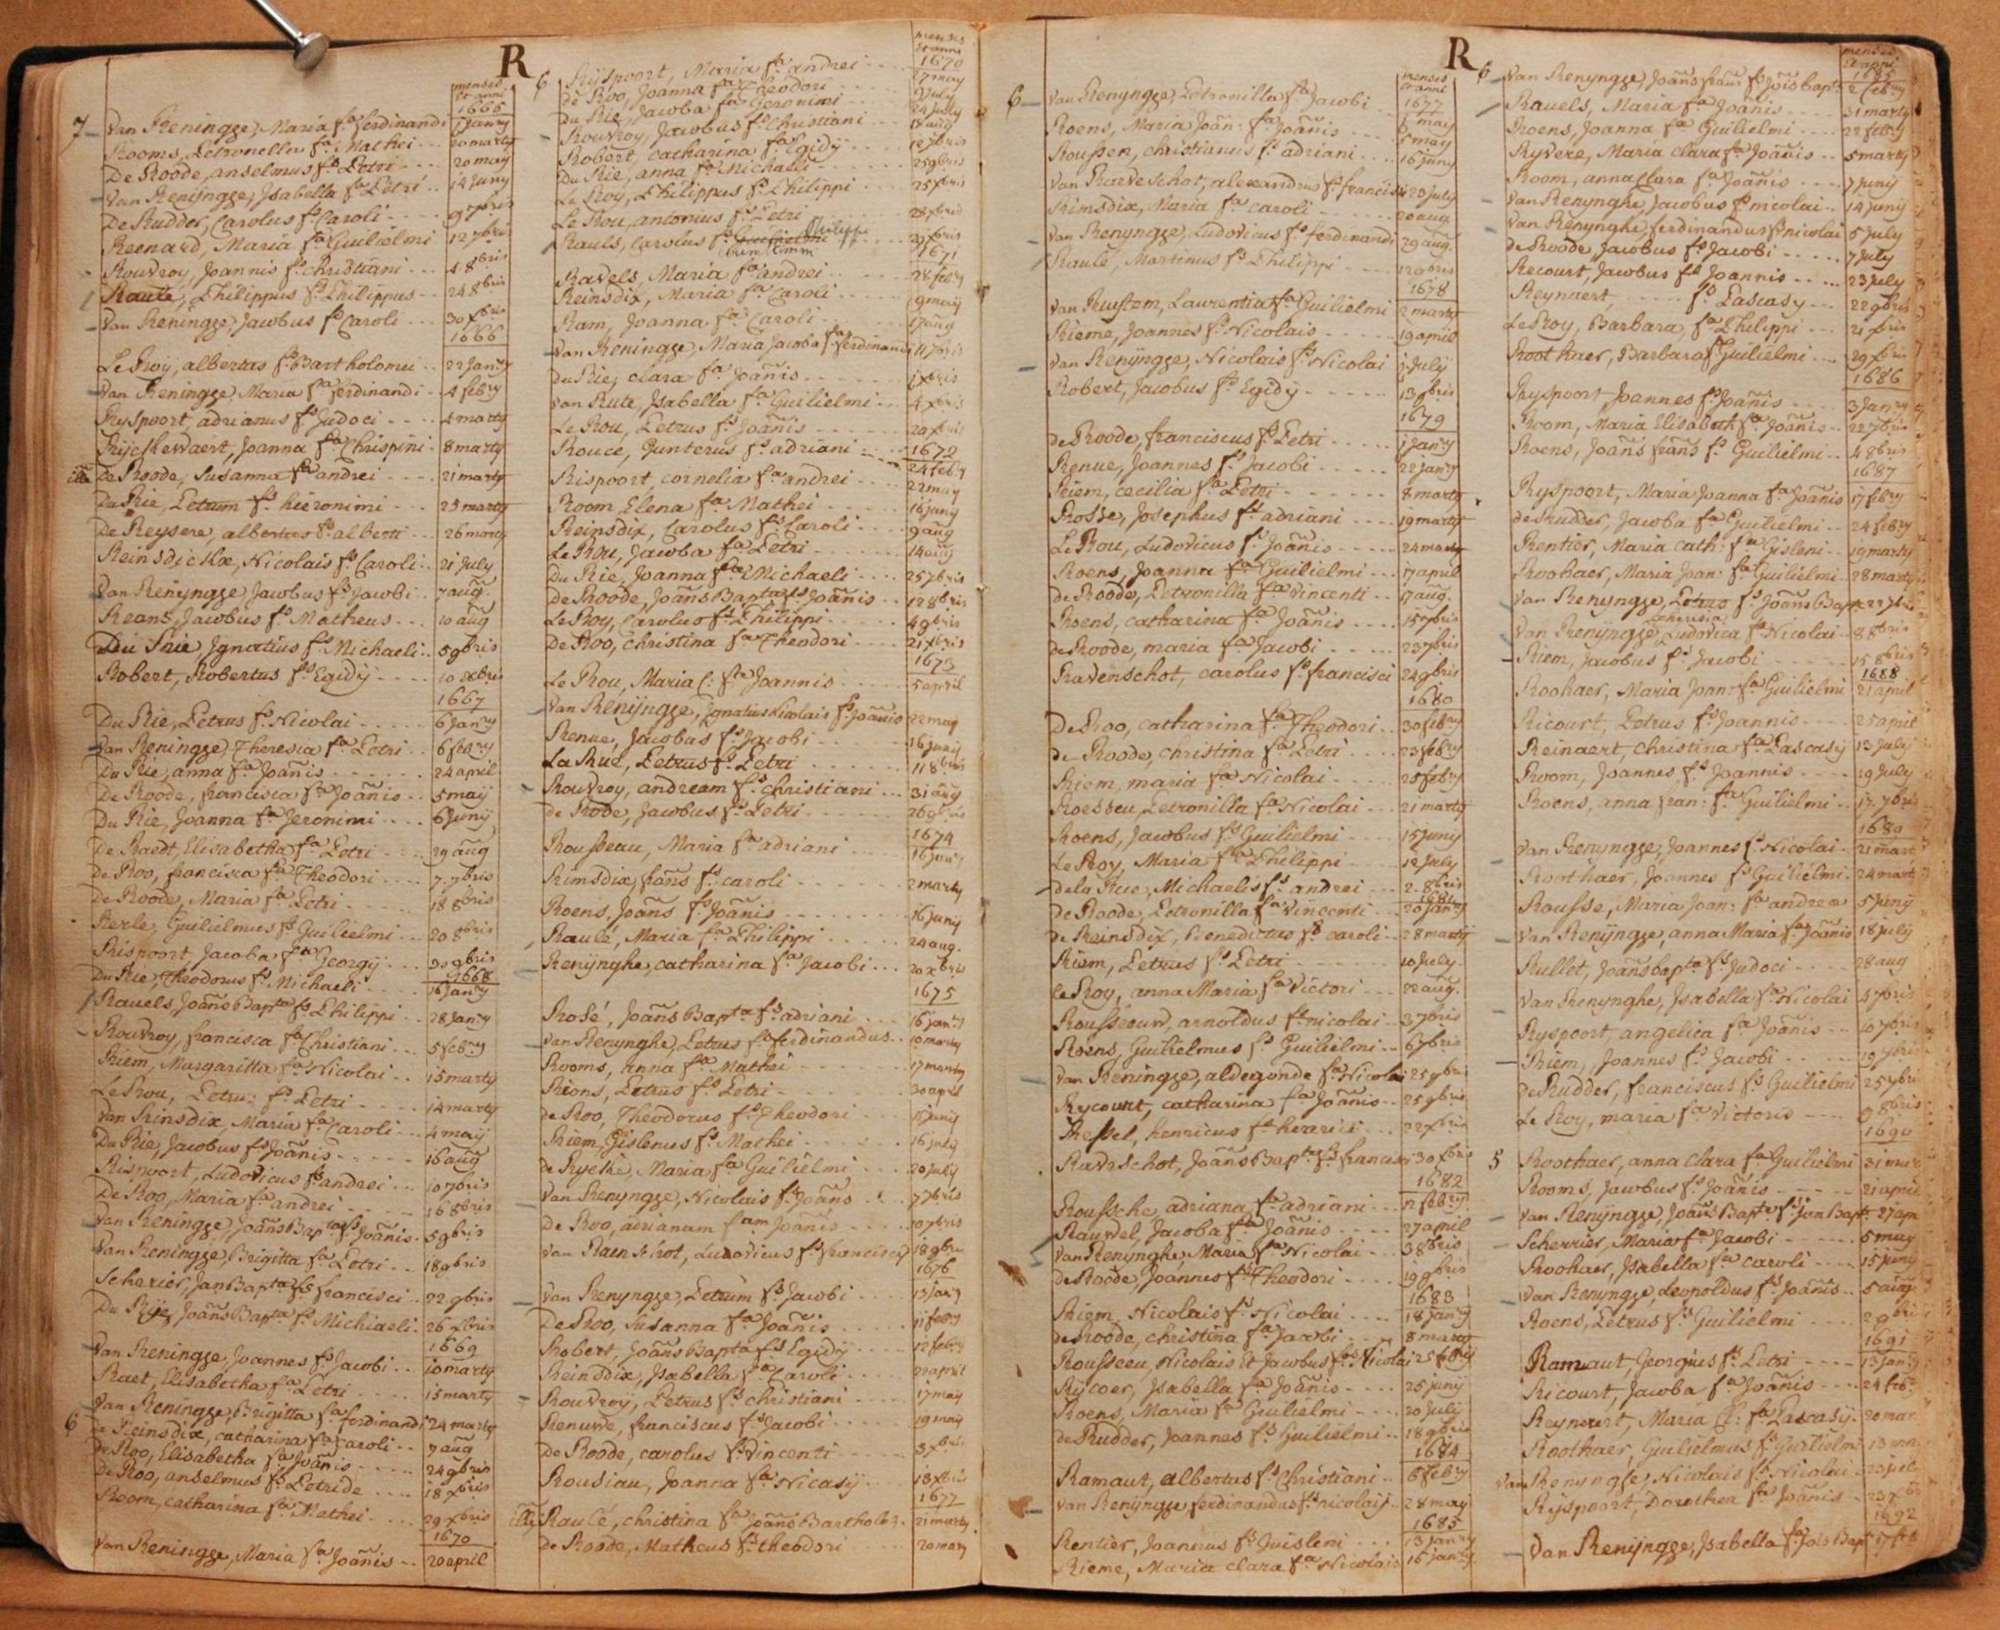 R
menses et anni
1665
7 Van Reningge, Maria fa ferdinandi 7 janry
Rooms, Petronella fa Mathei 20 marty
De Roode, anselmus fs Petri 20 may
Van Renijngge, Isabella fa Petri 14 juny
De Rudder, Carolus fs Caroli 9 7bris
Reenard, Maria fa Guilielmi 12 7bris
Rouvroy, Joannis fs christiani 4 8bris
Raulé, Philippus fs Philippus 24 8bris
Van Reningge, Jacobus fs Caroli 30 xbris
1666
Le Roy, albertus fs Bartholomei 22 Janry
Van Reningge, Maria fa ferdinandi 4 febry
Ryspoort, adrianus fs Judoci 4 marty
Rijckewaert, Joanna fa Chrispini 8 marty
De Roode, Susanna fa andrei 21 marty
Du Rie, Petrum fs hieronimi 25 marty
De Reysere, albertus fs alberti 26 marty
Reinsdickx, Nicolais fs Caroli 21 July
Van Renijngge, Jacobus fs Jacobi 7 aug
Reans, Jacobus fs Matheus 10 aug
Du Rie, Ignatius fs Michaeli 5 9bris
Robert, Robertus fs Egidij 10 xbris
1667
Du Rie, Petrus fs Nicolai 6 Janry
Van Reningge, Theresia fa Petri 6 febry
Du Rie, anna fa Joānis 24 april
De Roode, francisca fa Joānis 5 maij
Du Rie, Joanna fa Jeronimi 6 Junij
De Raedt, Elisabetha fa Petri 29 aug
De Roo, francisca fa Theodori 7 7bris
De Roode, Maria fa Petri 18 8bris
Rerle, Guilielmus fs Guilielmi 20 8bris
Rispoort, Jacoba fa Georgij 30 9bris
1668
Du Rie, Theodorus fs Michaeli 16 janry
Rauels, Joānes Bapta fs Philippi 28 Janry
Rouvroy, francisca fa Christiani 5 febry
Riem, Margaritta fa Nicolai 15 marty
Le Rou, Petrus fs Petri 14 marty
Van Rinsdix, Maria fa Caroli 4 maij
Du Rie, Jacobus fs Joānis 16 aug
Rispoort, Ludovicus fs andrei 10 7bris
De Roo, Maria fa andrei 16 8bris
Van Reningge, Joāns Bapta fs Joānis 5 9bris
Van Reningge, Brigitta fa Petri 18 9bris
Scherier, Jan Bapta fs francisci 22 9bris
Du Rije, Joāns Bapta fs Michiaeli 26 xbris
1669
Van Reningge, Joannes fs Jacobi 10 marty
Raet, Elisabetha fa Petri 15 marty
Van Reningge, Brigitta fa ferdinandi 24 marty
6 De Reinsdix, catharina fa Caroli 7 aug
De Roo, Elisabetha fa Joānis 24 9bris
De Roo, anselmus fs Petride 18 xbris
Room, catharina fa Mathei 29 xbris
1670
Van Reningge, Maria fa Joānis 20 april
menses et anni
1670
6 Rijspoort, Maria fa andrei 17 may
de Roo, Joanna fa Theodori 9 July
Du Rie, Jacoba fa Jeronimi 24 July
Rouvroy, Jacobus fs Christiani 18 aug
Robert, catharina fa Egidij 12 7bris
Du Rie, anna fa Michaeli 25 9bris
Le Roy, Philippus fs Philippi 25 xbris
Le Rou, antonius fs Petri 28 xbris
Rauls, Carolus fs Philippi 29 xbris
1671
Ravels, Maria fa andrei 28 febry
Reinsdix, Maria fa Caroli 9 maij
Ram, Joanna fa Caroli 17 aug
Van Reningge, Maria Jacoba fa ferdinandi 11 7bris
du Rie, clara fa Joānis 1 xbris
van Rute, Isabella fa Guilielmi 4 xbris
Le Rou, Petrus fs Joānis 20 xbris
1672
Rouce, Gunterus fs adriani 24 febry
Rispoort, cornelia fa andrei 22 may
Room Elena fa Mathei 16 juny
Reinsdix, Carolus fs Caroli 9 aug
Le Rou, Jacoba fa Petri 14 aug
Du Rie, Joanna fa Michaeli 25 7bris
De Roode, Joāns Bapta fs Joānis 12 8bris
Le Roy, Carolus fs Philippi 4 9bris
De Roo, christina fa Theodori 21 xbris
1673
Le Rou, Maria C: fa Joannis 5 april
Van Renijngge, Ignatius Nicolais fs Joānis 22 may
Renue, Jacobus fs Jacobi 16 junij
La Rue, Petrus fs Petri 11 8bris
Rouvroy, andream fs christiani 31 aug
de Rode, Jacobus fs Petri 26 9bris
1674
Rousseau, Maria fa adriani 16 janry
Rimsdix, Joāns fs caroli 2 marty
Roens, Joāns fs Joānis 16 junij
Raulé, Maria fa Philippi 24 aug.
Renijnghe, catharina fa Jacobi 20 xbris
1675
Rosé, Joāns Bapta fs adriani 16 janry
Van Renijnghe, Petrus fs ferdinandus 10 marty
Rooms, anna fa Mathei 17 marty
Rions, Petrus fs Petri 30 april
de Roo, Theodorus fs Theodori 15 junij
Riem, Gislenus fs Mathei 16 july
de Ryckë, Maria fa Guilielmi 20 july
Van Renyngge, Nicolais fs Joāns 7 7bris
De Roo, adrianam fam Joānis 10 7bris
van Ravnschot, Ludovicus fs francisci 18 9bris
1676
Van Renyngge, Petrum fs Jacobi 15 Janry
De Roo, Susanna fa Joānis 11 febry
Robert, Joāns Bapta fs Egidij 12 febry
Reinsdix, Isabella fa Caroli 22 april
Rouvroy, Petrus fs christiani 17 may
Renuve, franciscus fs Jacobi 19 maij
De Roode, carolus fs Vincenti 3 xbris
Rousiau, Joanna fa Nicasij 18 xbris
1677
Raulé, christina fa Joāns Bartholm. 21 marty
de Roode, Matheus fs theodori 20 may
R
menses et anni
1677
6 Van Renyngge, Petronilla fa Jacobi 1 may
Roens, Maria Joān: fa Joānis 5 may
Roussen, christianus fs adriani 16 juny
Van Raeveschot, alexandrus fs francisci 29 july
Rimsdix, Maria fa caroli 20 aug.
Van Renyngge, Ludovicus fs ferdinandi 29 aug.
Raulé, Martinus fs Philippi 12 9bris
1678
Van Ruystem, Laurentia fa Guilielmi 2 marty
Rieme, Joannes fs Nicolais 19 april
Van Renijngge, Nicolais fs Nicolai 1 July
Robert, Jacobus fs Egidij 13 9bris
1679
de Roode, franciscus fs Petri 1 janry
Renue, Joannes fs Jacobi 22 janry
Riem, cecilia fa Petri 8 marty
Rosse, Josephus fs adriani 19 marty
Le Rou, Ludovicus fs Joānis 24 marty
Roens, Joanna fa Guilielmi 17 april
de Roode, Petronilla fa Vincenti 17 aug.
Roens, catharina fa Joānis 15 7bris
de Roode, maria fa Jacobi 23 7bris
Ravenschot, carolus fs francisci 24 9bris
1680
De Roo, catharina fa Theodori 30 febry
de Roode, christina fa Petri 23 febry
Riem, maria fa Nicolai 25 febry
Roesbeu, Petronilla fa Nicolai 21 marty
Roens, Jacobus fs Guilielmi 15 juny
Le Roy, Maria fa Philippi 12 July
de la Rue, Michaelis fs andrei 2 8bris
1681
de Roode, Petronilla fa Vincenti 20 janry
de Reinsdix, Benedictus fs caroli 28 marty
Riem, Petrus fs Petri 10 july
le Roy, anna Maria fa Victori 22 aug.
Rousseouw, arnoldus fs nicolai 3 7bris
Roens, Guilielmus fs Guilielmi 6 7bris
Van Reningge, aldegonde fa Nicolai 25 9bris
Rycourt, catharina fa Joānis 25 9bris
Ressel, henricus fs henrici 22 xbris
Ravdschot, Joāns Bapta fs francisci 30 xbris
1682
Roussche adriana fa adriani 12 febry
Raupel, Jacoba fa Joānis 27 april
Van Renynghe, Maria fa Nicolai 3 8bris
de Roode, Joannes fs Theodori 19 9bris
1683
Riem, Nicolais fs Nicolai 18 janry
de Roode, christina fa Jacobi 8 marty
Rousseeu, Nicolais et Jacobus fs Nicolai 25 febry
Rijcoer, Isabella fa Joānis 25 junij
Roens, Maria fa Guilielmi 20 July
de Rudder, Joannes fs Guilielmi 18 9bris
1684
Ramaut, albertus fs christiani 6 febry
van Renijngge ferdinandus fs nicolaij 28 maij
1685
Rentier, Joannus fs Guisleni 13 janry
Rieme, Maria clara fa Nicolais 16 janry
menses et anni
1685
6 Van Renyngge, Joāns frans fs Jois bapt. 2 febry
Rauels, Maria fa Joānis 31 marty
Roens, Joanna fa Guilielmi 22 febry
Ryvere, Maria clara fa Joānis 5 marty
Room, anna clara fa Joānis 7 junij
Van Renynghe, Jacobus fs nicolai 14 junij
Van Renynghe, ferdinandus fs nicolai 5 july
de Roode, Jacobus fs Jacobi 7 july
Recourt, Jacobus fs Joannis 23 july
Reynaert fs Pascasy 22 9bris
Le Roy, Barbara fa Philippi 21 xbris
Root haer, Barbara fa Guilielmi 29 xbris
1686
Ryspoort Joannes fs Joānis 3 janry
Room, Maria Elisabeth fa Joānis 22 7bris
Roens, Joāns frans fs Guilielmi 4 8bris
1687
Ryspoort, Maria Joanna fa Joānis 17 febry
de Rudder, Jacoba fa Guilielmi 24 febry
Rentier, Maria cath: fa Gisleni 19 marty
Roohaer, Maria Joan: fa Guilielmi 28 marty
Van Renyngge, Petrus fs Joāns Bapte 22 7bris
Van Renijngge, Theresia Ludovica fa Nicolai 8 8bris
Riem, Jacobus fs Jacobi 15 8bris
1688
Roohaer, Maria Joan: fa Guilielmi 21 april
Ricourt, Petrus fs Joannis 25 april
Reinaert, Christina fa Pascasij 13 July
Room, Joannes fs Joannis 19 July
Roens, anna fran: fa Guilielmi 17 7bris
1689
Van Renyngge, Joannes fs Nicolai 21 mart
Roothaer, Joannes fs Guilielmi 24 mart
Rousse, Maria Joan: fa andreæ 5 junij
Van Renijngge, anna Maria fa Joānis 18 july
Rullet, Joāns bapta fs Judoci 28 aug
Van Renynghe, Isabella fa Nicolai 4 7bris
Ryspoort angelica fa Joānis 10 7bris
Riem, Joannes fs Jacobi 19 7bris
de Rudder, franciscus fs Guilielmi 25 7bris
Le Roy, maria fa Victoris 9 8bris
1690
5 Roothaer, anna clara fa Guilielmi 31 mar
Rooms, Jacobus fs Joānis 21 april
Van Renijngge, Joāns Bapta fs Jan Bapt. 27 apr
Scherrier, Maria fa Jacobi 5 may
Roohaer, Isabella fa caroli 15 juny
Van Renyngge, Leopoldus fs Joānis 5 aug
Roens, Petrus fs Guilielmi 2 9bris
1691
Ramaut Georgius fs Petri 13 janry
Ricourt, Jacoba fa Joānis 24 feb
Reynaert, Maria C: fa Pascasij 20 mar
Roothaer, Guilielmus fs Guilielmi 13
Van Renyngge, Nicolais fs Nicolai
Rijspoort, Dorothea fa Joānis 23 7bris
1692
Van Renijngge, Isabella fa Jois Bapt 17 feb